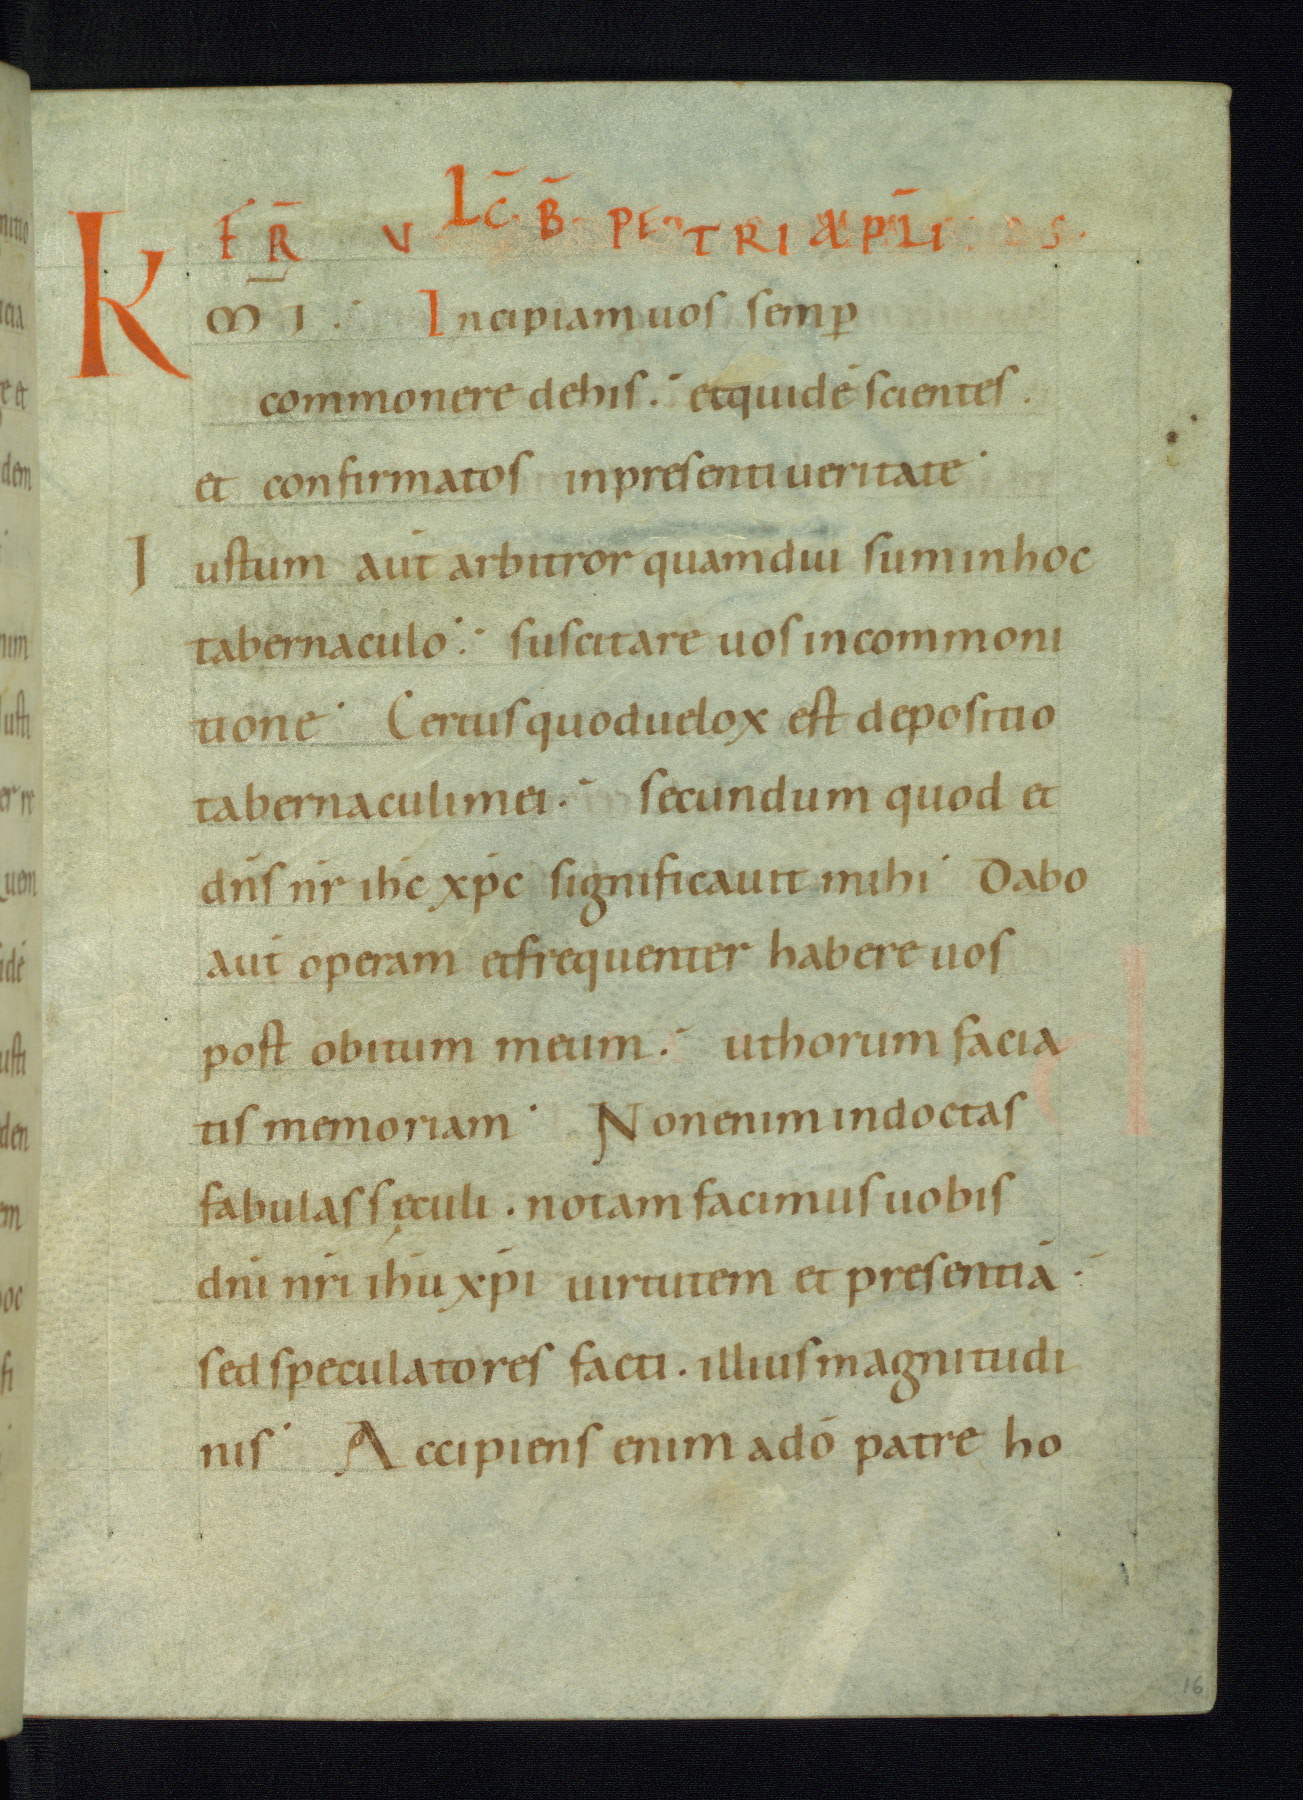 FR̄ V Lc̄ B̄ PETRI APL̄I
K MI. Incipiam uos semꝑ
commonere dehis. etquidē scientes.
et confirmatos inpresentiueritate
Iustum aut̄ arbitror quamdiu suminhoc
tabernaculo: suscitare uos incommoni
tione Certusquoduelox est depositio
tabernaculimei. secundum quod et
dn̄s nr̄ ih̄c xp̄c significauit mihi Dabo
aut̄ operam etfrequenter habere uos
post obitum meum. uthorum facia
tis memoriam Nonenim indoctas
fabulas sęculi. notam facimus uobis
dn̄i nr̄i ih̄u xp̄i uirtutem et presentiā.
sed speculatores facti. illiusmagnitudi
nis Accipiens enim adō patre ho
16